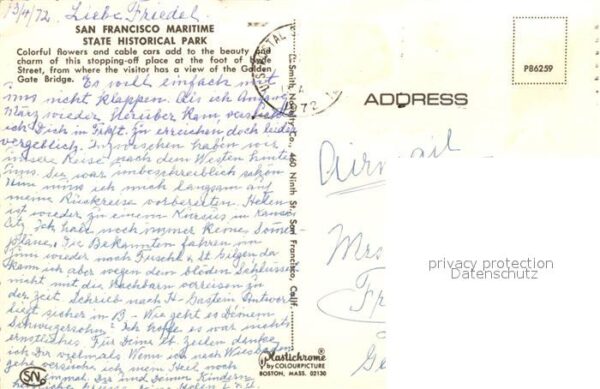 13/4/72. Liebe Friedel.
SAN FRANCISCO MARITIME
STATE HISTORICAL PARK
Colorful flowers and cable cars add to the beauty and
charm of this stopping-off place at the foot of Hyde
Street, from where the visitor has a view of the Golden
Gate Bridge.
Es will einfach mit
uns nicht klappen. Als ich Anfang
März wieder herüber kam, versuchte
ich Dich in Fkft. zu erreichen doch leider
vergeblich. Inzwischen haben wir
unsere Reise nach dem Westen hinter
uns. Sie war unbeschreiblich schön
Nun muss ich mich langsam auf
meine Rückreise vorbereiten. Helen
ist wieder zu einem Kursus in Kansas
City. Ich hab noch immer keine Sommer-
pläne. Die Bekannten fahren im
Juni wieder nach Fuschl & St Gilgen da
kann ich aber wegen dem blöden Schlüssel
nicht mit die Nachbarn verreisen zu
der Zeit. Schrieb nach H- Gastein Antwort
liegt sicher in B - Wie geht es Deinem
Schwiegersohn? Ich hoffe es war nichts
ernstliches. Für Deine lb. Zeilen danke
ich Dir vielmals. Wenn ich nach Wiesbaden
gehe versuche ich mein Heil noch
einmal. Dir und Deinen Kindern
herzliche
SN
C. Smith Novelty Co., 460 Ninth St., San Francisco, Calif.
Plastichrome
by COLOURPICTURE
BOSTON, MASS. 02130
U.S. POSTAL
1972
P86259
ADDRESS
Airmail
Mrs
privacy protection
Datenschutz